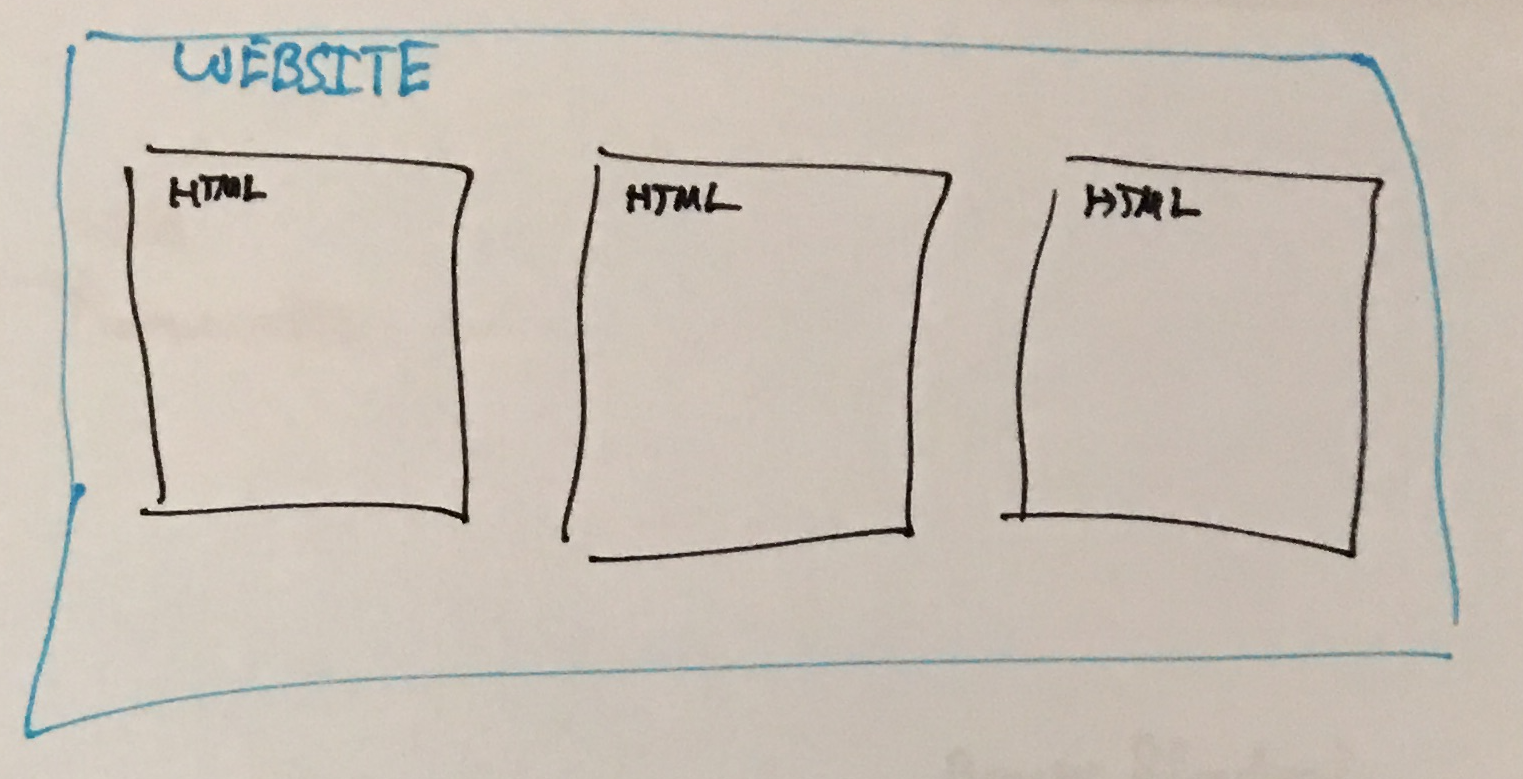 WEBSITE
HTML
HTML
HTML